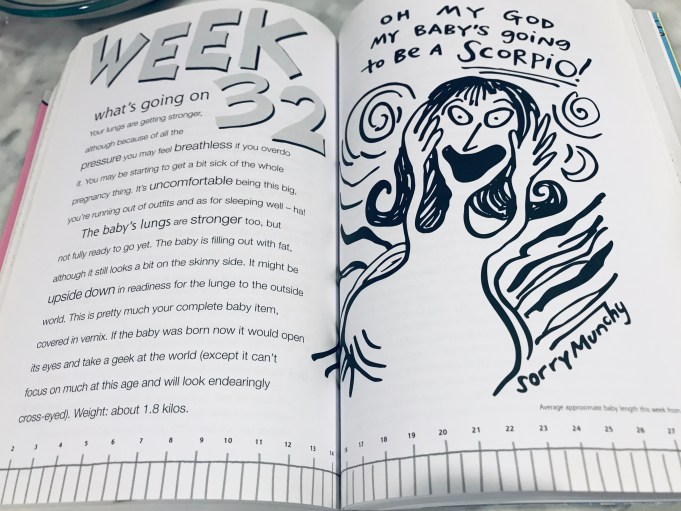 WEEK
32
what's going on
Your lungs are getting stronger,
although because of all the
pressure you may feel breathless if you overdo
it. You may be starting to get a bit sick of the whole
pregnancy thing. It's uncomfortable being this big,
you're running out of outfits and as for sleeping well – ha!
The baby's lungs are stronger too, but
not fully ready to go yet. The baby is filling out with fat,
although it still looks a bit on the skinny side. It might be
upside down in readiness for the lunge to the outside
world. This is pretty much your complete baby item,
covered in vernix. If the baby was born now it would open
its eyes and take a geek at the world (except it can't
focus on much at this age and will look endearingly
cross-eyed). Weight: about 1.8 kilos.
2 3 4 5 6 7 8 9 10 11 12 13
OH MY GOD
MY BABY'S going
to BE A SCORPIO!
sorry Munchy
Average approximate baby length this week from
17 18 19 20 21 22 23 24 25 26 27